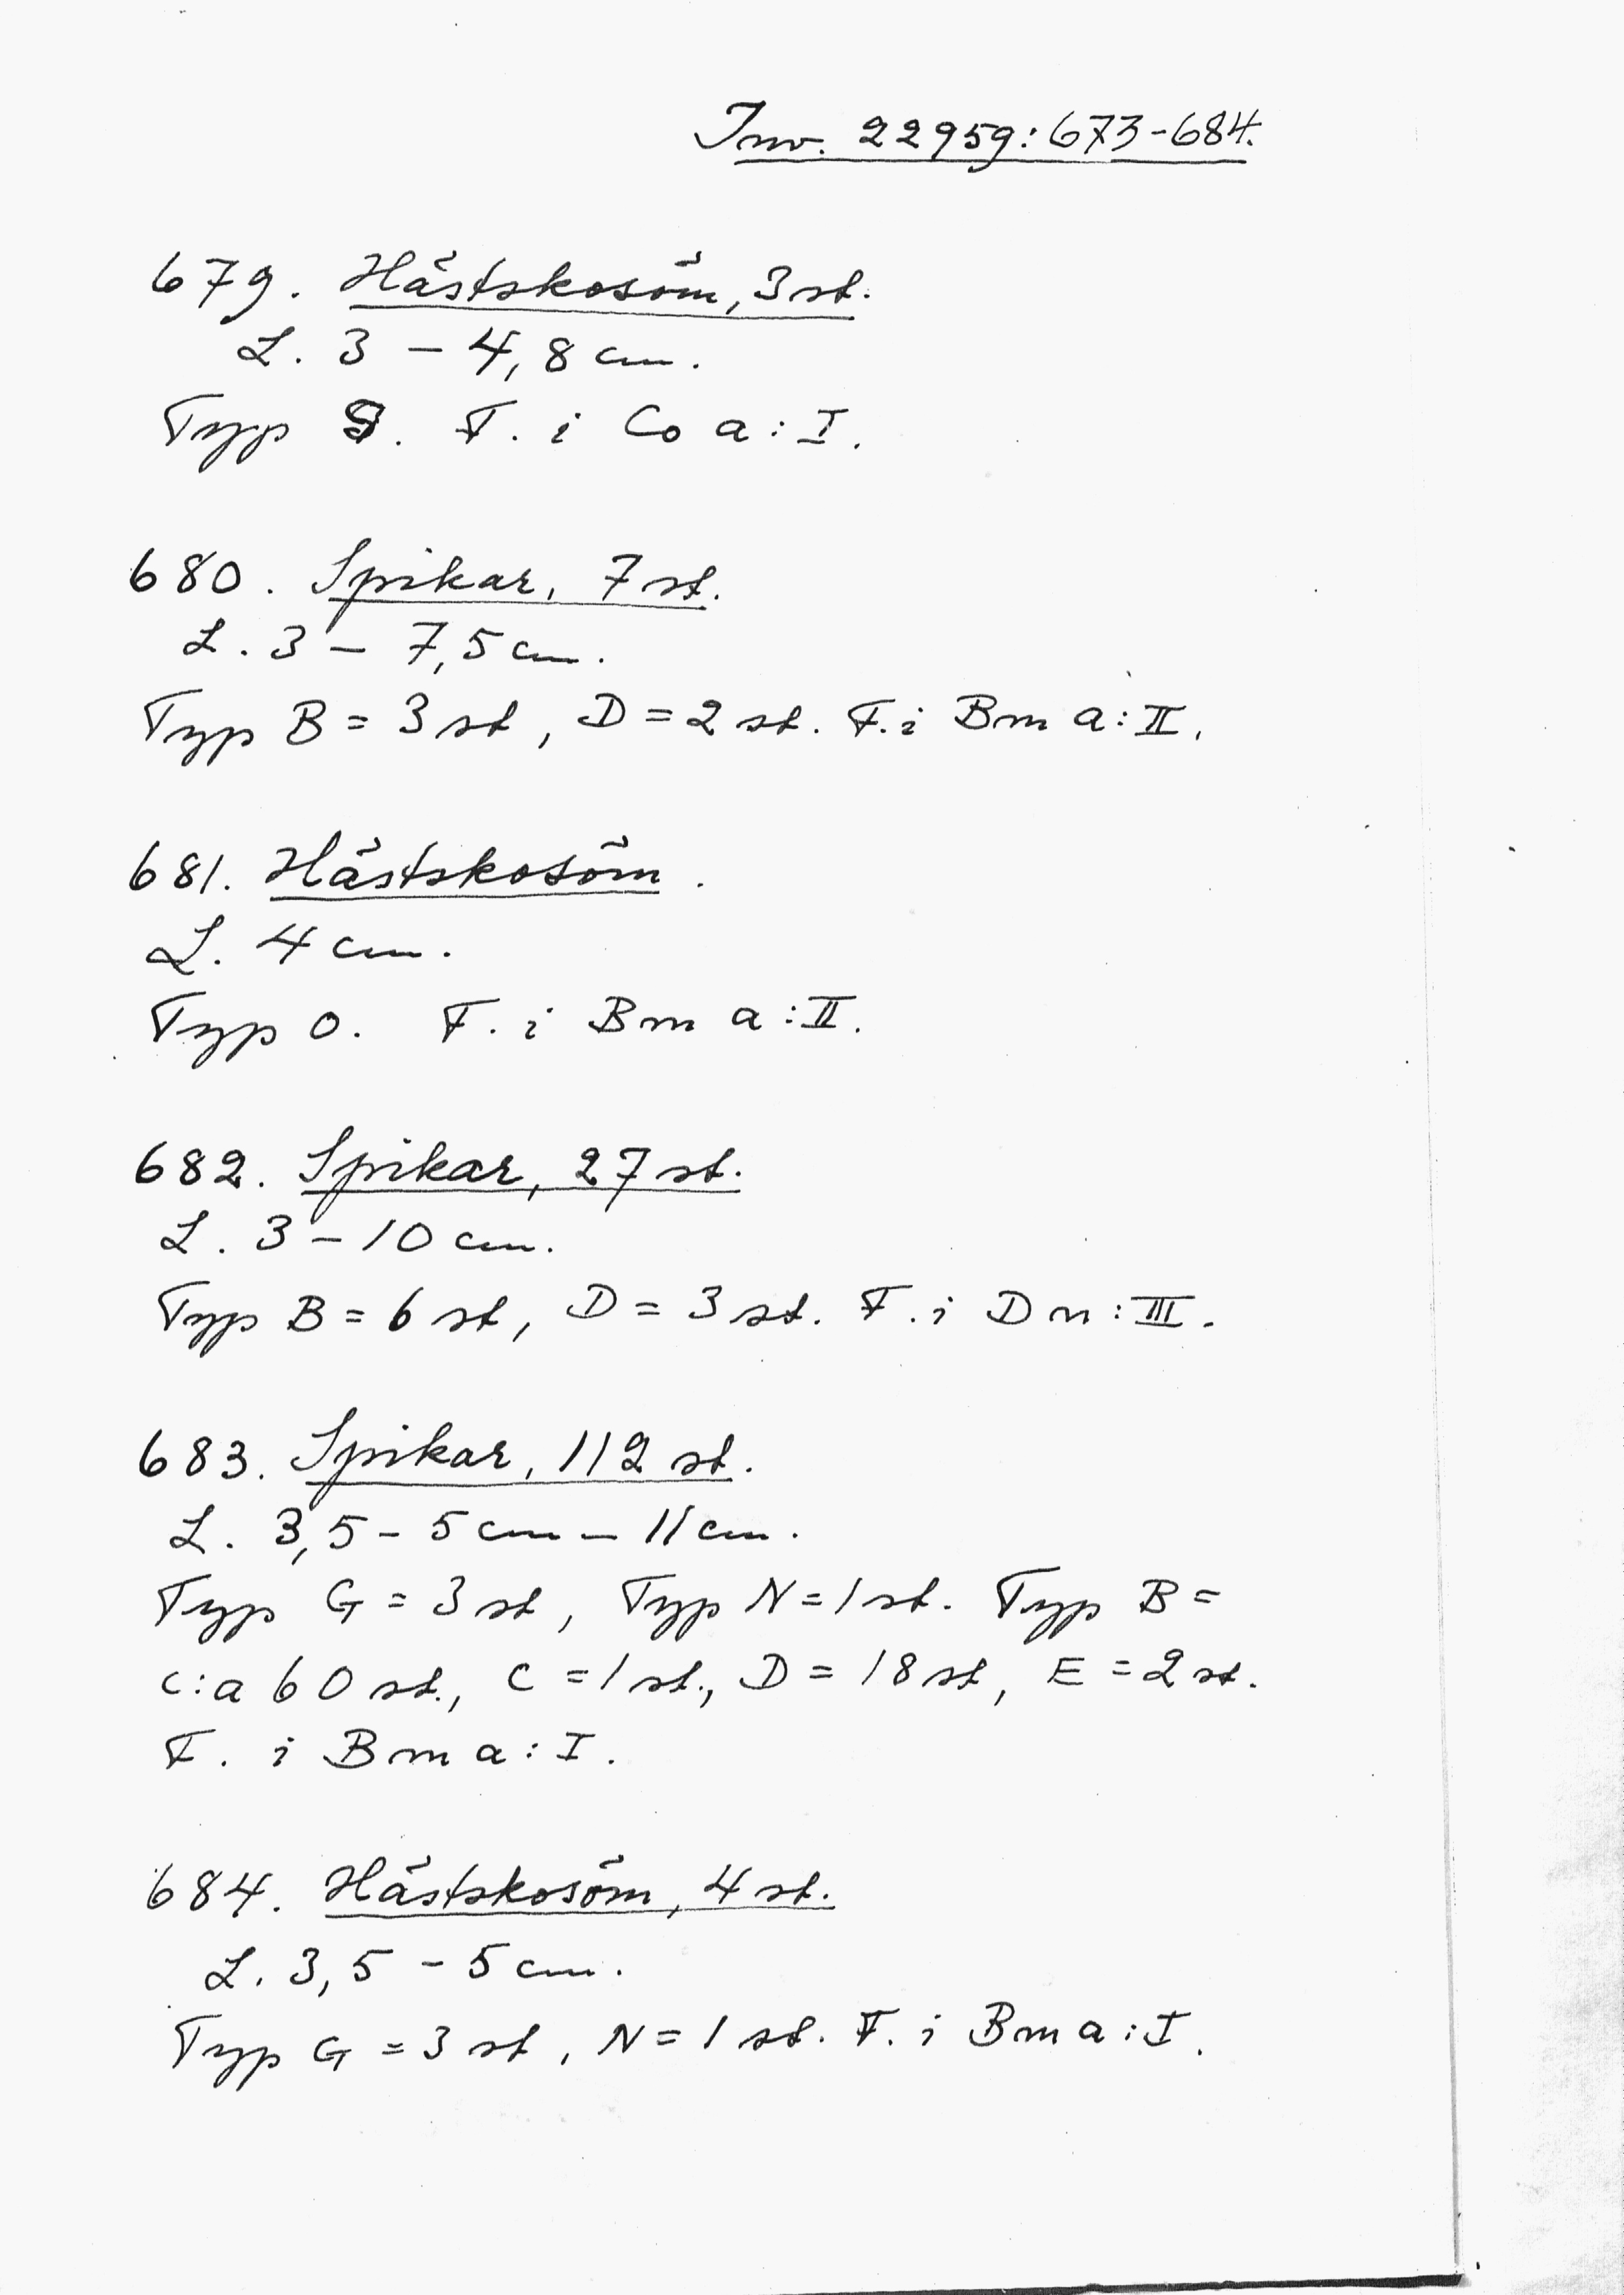 Inv. 22959:673-684.
679. Hästskosöm, 3 st.
L. 3 – 4,8 cm.
Typ . F. i Co a:I.
680. Spikar, 7 st.
L. 3 – 7,5 cm.
Typ B = 3 st, D = 2 st. F. i Bm a:II.
681. Hästskosöm.
L. 4 cm.
Typ O. F. i Bm a:II.
682. Spikar, 27 st.
L. 3 – 10 cm.
Typ B = 6 st, D = 3 st. F. i D n:III.
683. Spikar, 112 st.
L. 3,5 - 5 cm – 11 cm.
Typ G = 3 st, Typ N = 1 st. Typ B =
c:a 60 st., C = 1 st., D = 18 st, E = 2 st.
F. i Bm a:I.
684. Hästskosöm, 4 st.
L. 3,5 - 5 cm.
Typ G = 3 st, N = 1 st. F. i Bm a:I.